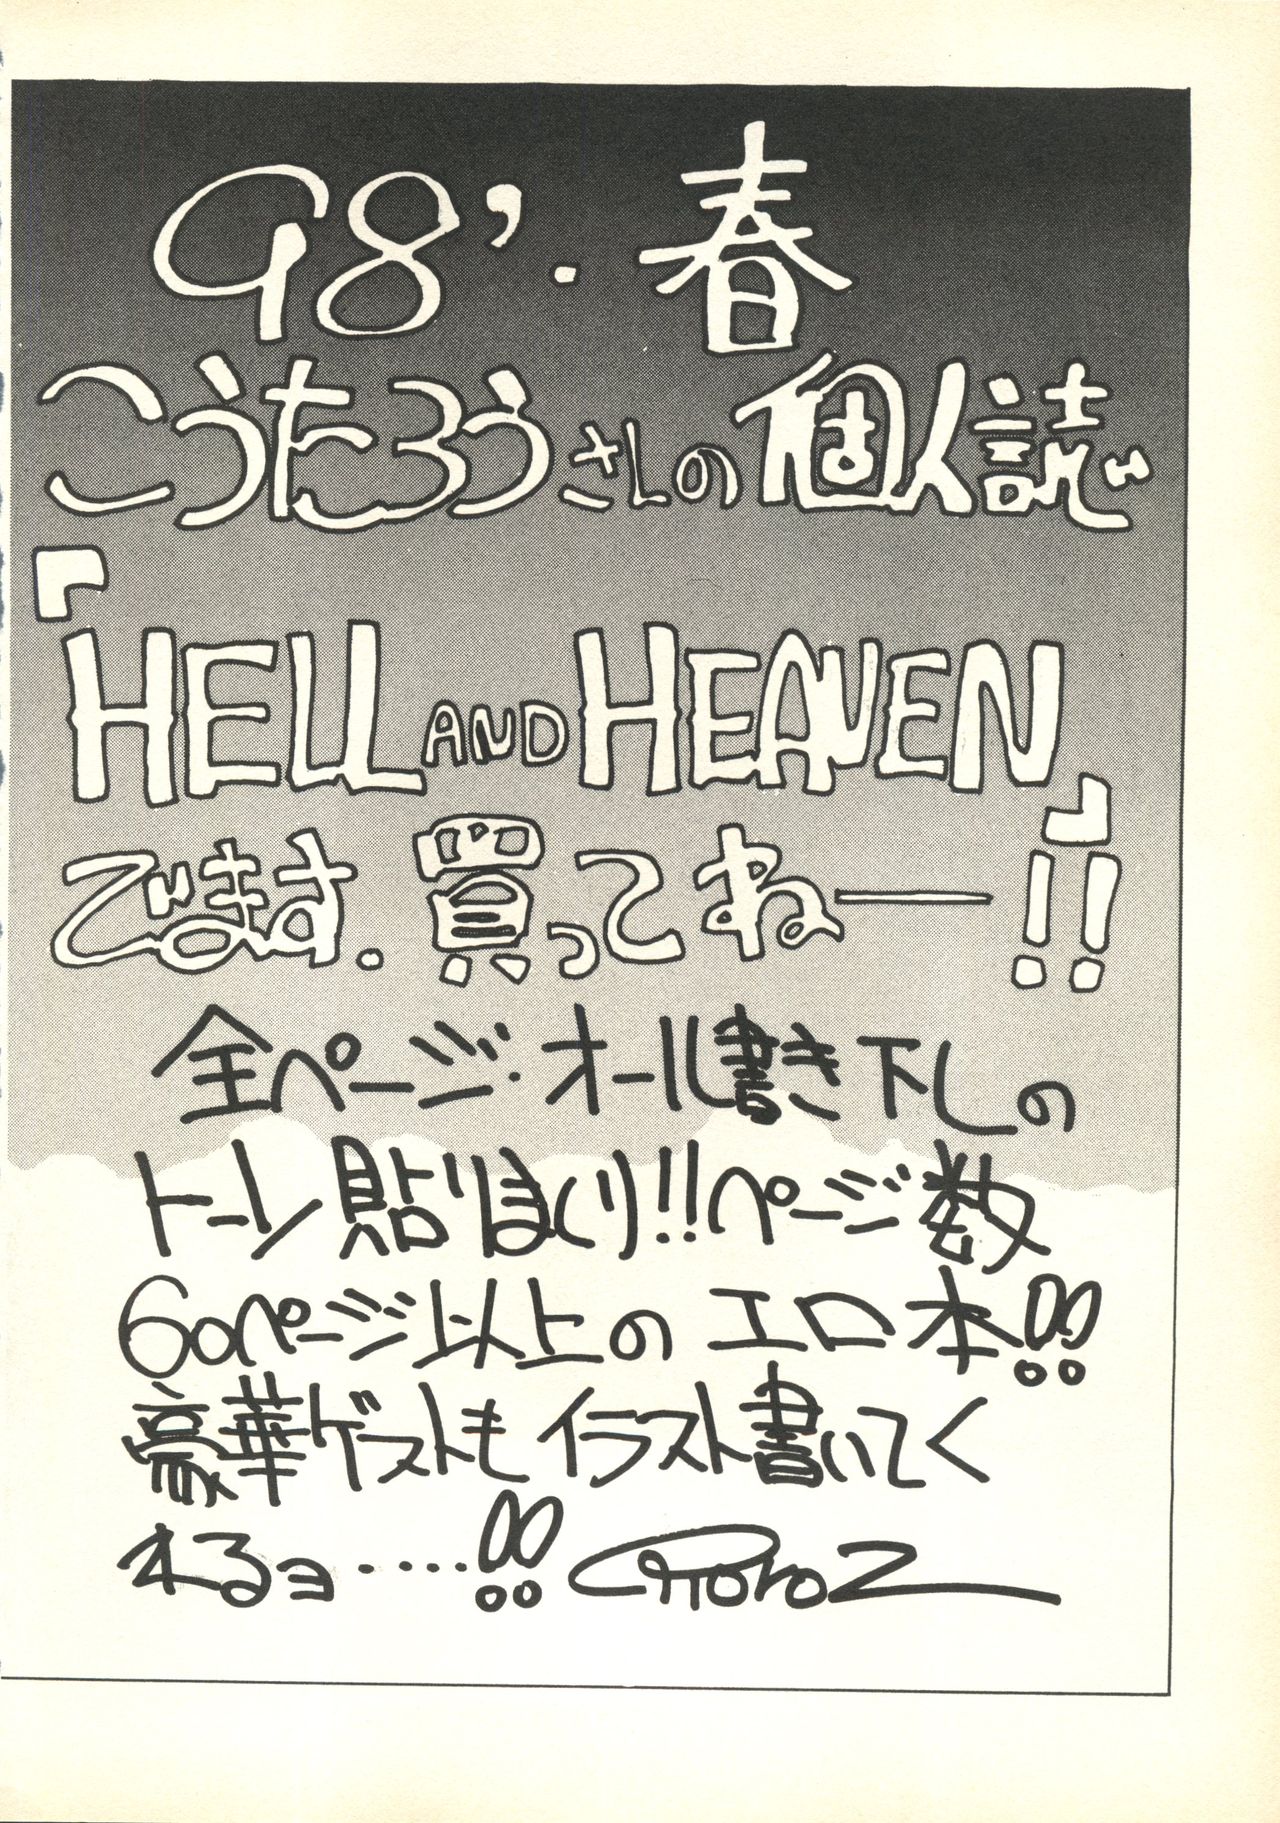 98'・春
こうたろうさんの個人誌"
『HELL AND HEAVEN』
でます.買ってねー!!
全ページ・オール書き下しの
トーン貼りまくり!!ページ数
60ページ以上のエロ本!!
豪華ゲストもイラスト書いてく
れるョ‥‥!!